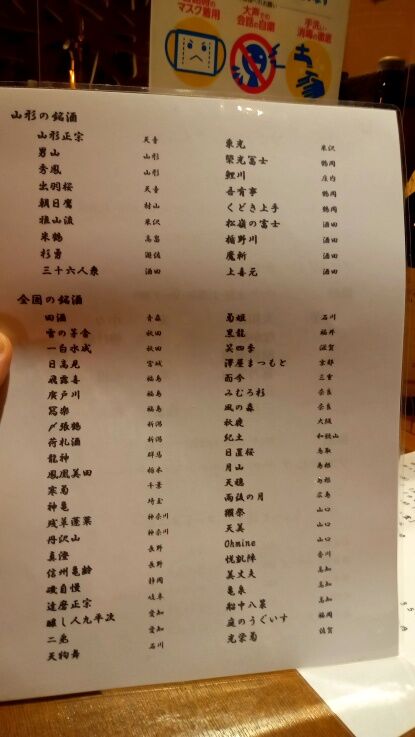 マスク着用
大声での
会話の自粛
手洗い
消毒の徹底
山形の銘酒
山形正宗 天童
男山 山形
秀鳳 山形
出羽桜 天童
朝日鷹 村山
雅山流 米沢
米鶴 高畠
杉勇 遊佐
三十六人衆 酒田
東光 米沢
栄光冨士 鶴岡
鯉川 庄内
吾有事 鶴岡
くどき上手 鶴岡
松嶺の富士 酒田
楯野川 酒田
魔斬 酒田
上喜元 酒田
全国の銘酒
田酒 青森
雪の茅舎 秋田
一白水成 秋田
日高見 宮城
飛露喜 福島
廣戸川 福島
冩楽 福島
〆張鶴 新潟
荷札酒 新潟
龍神 群馬
鳳凰美田 栃木
寒菊 千葉
神亀 埼玉
残草蓬莱 神奈川
丹沢山 神奈川
真澄 長野
信州亀齢 長野
磯自慢 静岡
達磨正宗 岐阜
醸し人九平次 愛知
二兎 愛知
天狗舞 石川
菊姫 石川
黒龍 福井
笑四季 滋賀
澤屋まつもと 京都
而今 三重
みむろ杉 奈良
風の森 奈良
秋鹿 大阪
紀土 和歌山
日置桜 鳥取
月山 島根
天穏 島根
雨後の月 広島
獺祭 山口
天美 山口
Ohmine 山口
悦凱陣 香川
美丈夫 高知
亀泉 高知
船中八策 高知
庭のうぐいす 福岡
光栄菊 佐賀